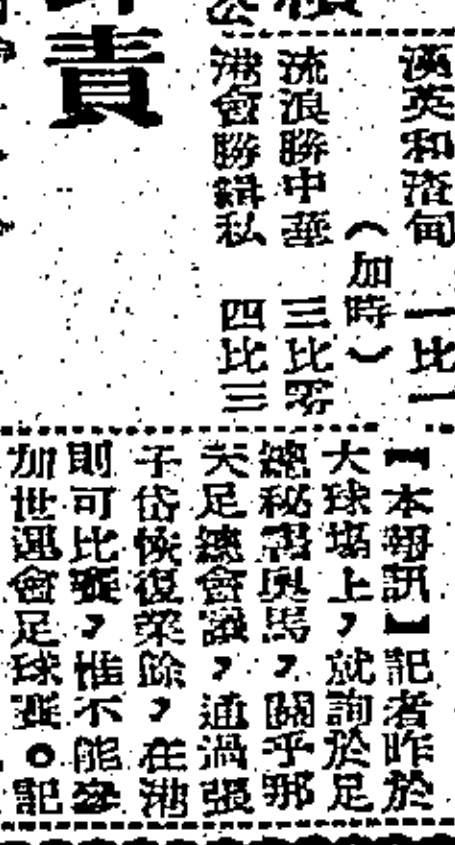 責
漢英和渣甸　一比一
（加時）
流浪勝中華　三比零
港會勝緝私　四比三
【本報訊】記者昨於
大球場上，就詢於足
總秘書奧馬，關乎那
天足總會議，通過張
子岱恢復業餘，在港
則可比賽，惟不能參
加世運會足球賽。記